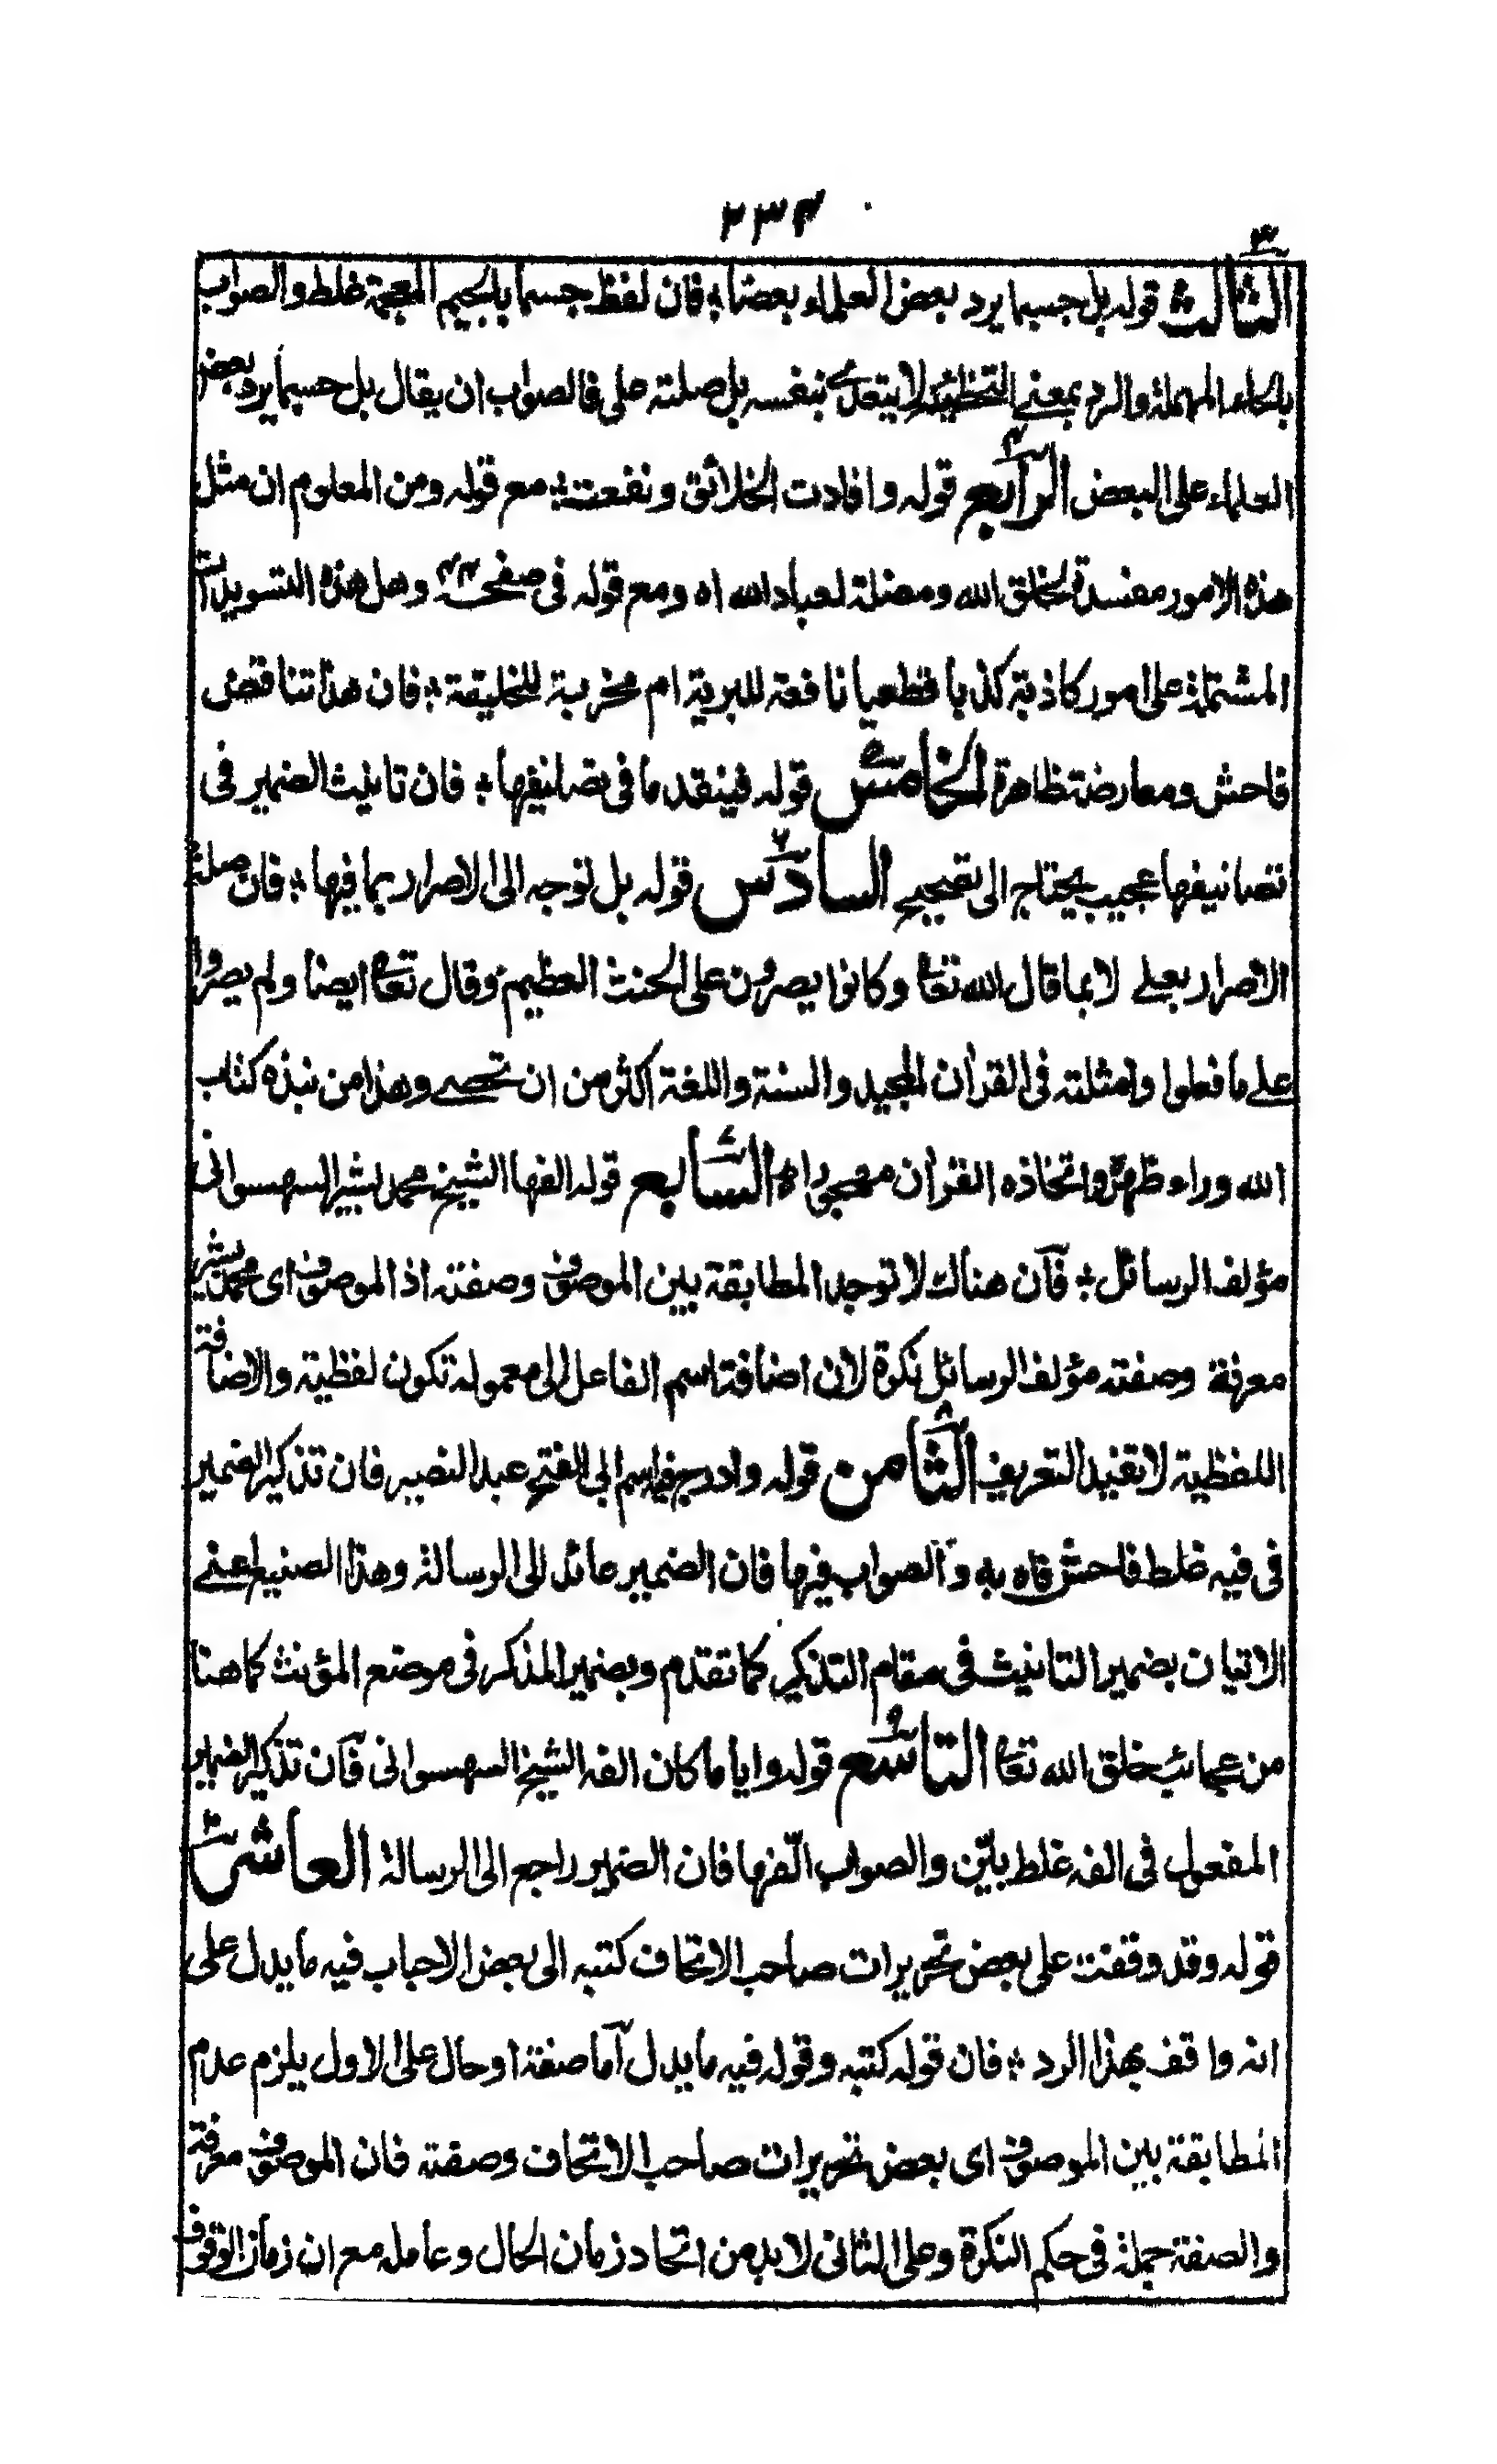 ٢٣٤
٣
الثالث قوله بل جسما يرد بعض العلماء بعضا ؛ فان لفظ جسما بالجيم المعجمة غلط والصواب
بالحاء المهملة والرد بمعنى التخطئة لا يتعدى بنفسه بل صلته على فالصواب ان يقال بل حسبما يرد بعض
العلماء على البعض الرابع ٤ قوله وافادت الخلائق ونفعت ؛ مع قوله ومن المعلوم ان مثل
هذه الامور مفسدة لخلق الله ومضلة لعباد الله اه ومع قوله فى صفحه وهل هذه التسويلات
المشتملة على امور كاذبة كذبا قطعيا نافعة للبرية ام مخربة للخليقة ؛ فان هذا تناقض
فاحش ومعارضة ظاهرة الخامس ٥ قوله فينقد ما فى تصانيفها ؛ فان تانيث الضمير فى
تصانيفها عجيب يحتاج الى تصحيح السادس ٦ قوله بل توجه الى الاصرار بما فيها ؛ فان صلة
الاصرار بعلى لا بما قال الله تعا وكانوا يصرون على الحنث العظيم وقال تعا ايضا ولم يصروا
على ما فعلوا وامثلته فى القران المجيد والسنة واللغة اكثر من ان تحصى وهذا من نبذه كتاب
الله وراء ظهره واتخاذه القران مهجورا السابع ٧ قوله الفها الشيخ محمد بشير السهسوانى
مؤلف الرسائل ؛ فان هناك لا توجد المطابقة بين الموصوف وصفته اذ الموصوف اى محمد بشير
معرفة وصفته مؤلف الرسائل نكرة لان اضافة اسم الفاعل الى معموله تكون لفظية والاضافة
اللفظية لا تفيد التعريف الثامن ٨ قوله وادرج فيه اسم ابى الفتح عبد النصير فان تذكير الضمير
فى فيه غلط فاحش فاه به والصواب فيها فان الضمير عائد الى الرسالة وهذا الصنيع اعنى
الاتيان بضمير التانيث فى مقام التذكير كما تقدم وبضمير المذكر فى موضع المؤنث كما هنا
من عجائب خلق الله تعا التاسع ٩ قوله وايا ما كان الفه الشيخ السهسوانى فان تذكير الضمير
المفعول فى الفه غلط بيّن والصواب الّفها فان الضمير راجع الى الرسالة العاشر ١٠
قوله وقد وقفت على بعض تحريرات صاحب الاتحاف كتبه الى بعض الاحباب فيه ما يدل على
انه واقف بهذا الرد ؛ فان قوله كتبه وقوله فيه ما يدل اما صفة او حال على الاول يلزم عدم
المطابقة بين الموصوف اى بعض تحريرات صاحب الاتحاف وصفته فان الموصوف معرفة
والصفة جملة فى حكم النكرة وعلى الثانى لا بد من اتحاد زمان الحال وعامله مع ان زمان الوقوف